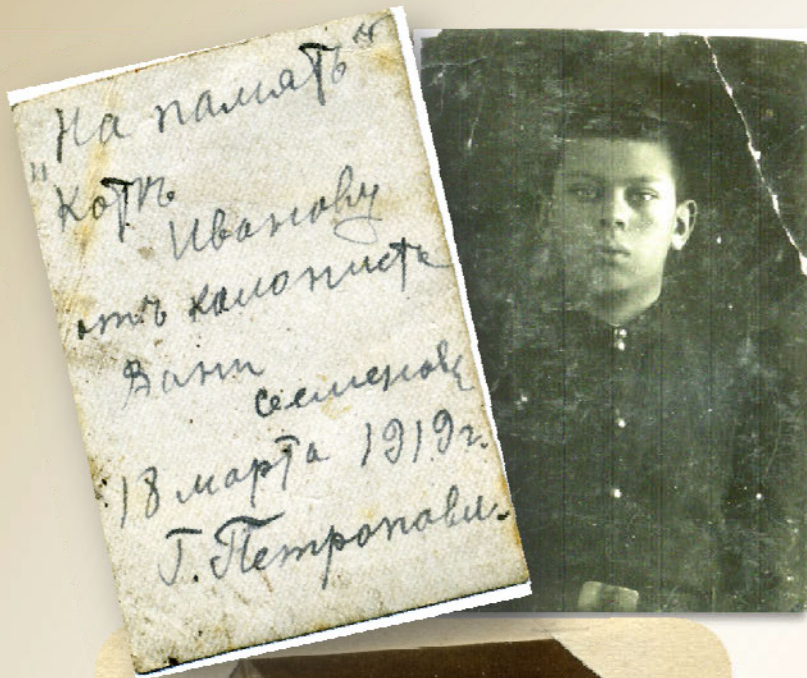 "На память"
"Котѣ
Иванову
отъ колониста
Вани
Семенова
18 марта 1919 г.
Г. Петропавл.